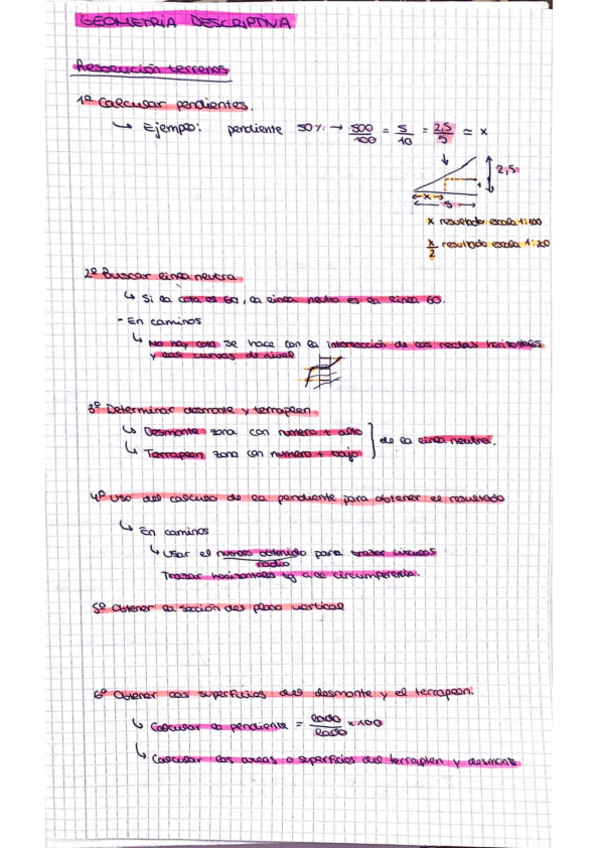 GEOMETRIA DESCRIPTIVA
Resolución terrenos
1º Calcular pendientes.
↳ Ejemplo: pendiente 50% → 500/100 = 5/10 = 2,5/5 ≃ x
2,5
x
1
5
x resultado escala 1:100
x/2 resultado escala 1:200
2º Buscar línea neutra
↳ Si la cota es 60, la línea neutra es la línea 60.
- En caminos
↳ No hay cota se hace con la intersección de las rectas horizontales
y las curvas de nivel
3º Determinar desmonte y terraplen
↳ Desmonte zona con numero + alto
↳ Terraplen zona con numero + bajo
de la línea neutra.
4º Uso del calculo de la pendiente para obtener el resultado
↳ En caminos
↳ Usar el numero obtenido para trazar circulos
radio
Trazar horizontales tg a la circumferencia.
5º Obtener la sección del plano vertical
6º Obtener las superficies del desmonte y el terraplen.
↳ Calcular la pendiente = lado/lado x 100
↳ Calcular las areas o superficies del terraplen y desmonte